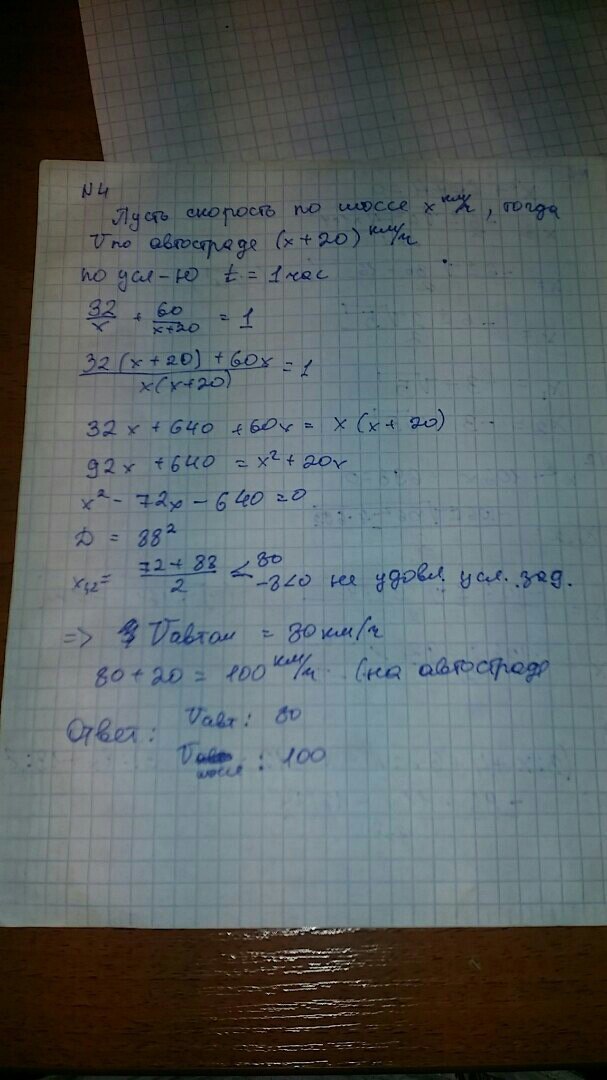 N4
Пусть скорость по шоссе x км/ч, тогда
V по автостраде (x+20) км/ч
по усл-ю t = 1 час
32/x + 60/x+20 = 1
32(x+20)+60x/x(x+20) = 1
32x+640+60x = x(x+20)
92x+640 = x²+20x
x²-72x-640=0
D = 88²
x1,2= 72+88/2 < 80
-8<0 не удовл. усл. зад.
=> Vавтом = 80 км/ч
80+20 = 100 км/ч (на автострад
Ответ: Vавт: 80
Vшоссе: 100